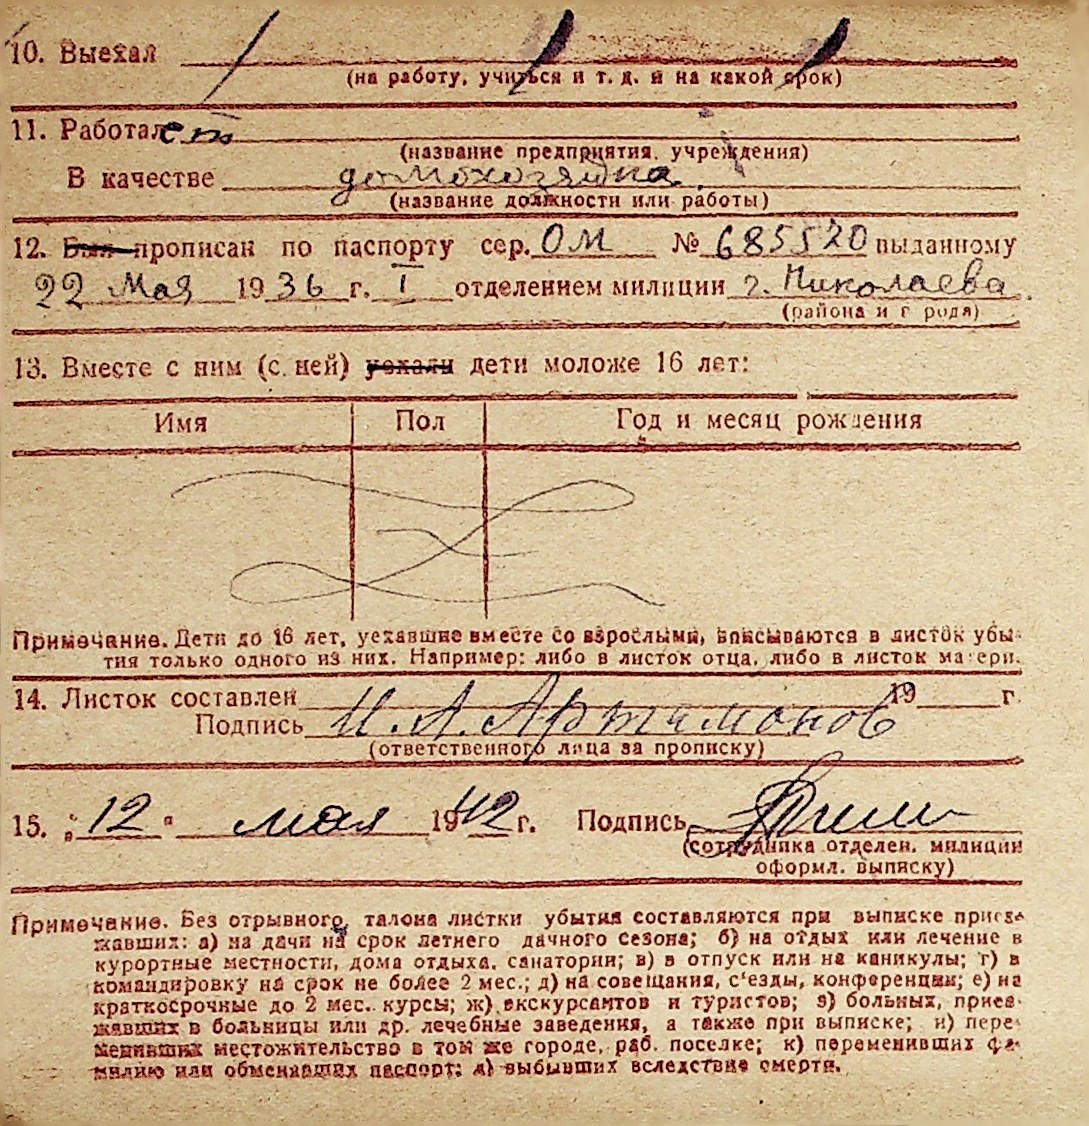 10. Выехал
(на работу, учиться и т. д. и на какой срок)
11. Работает
(название предприятия, учреждения)
В качестве домохозяйка
(название должности или работы)
12. Был прописан по паспорту сер. ОМ № 685520 выданному
22 Мая 1936 г. I отделением милиции г. Николаева
(района и г рода)
13. Вместе с ним (с. ней) уехали дети моложе 16 лет:
Имя Пол Год и месяц рождения
Примечание. Дети до 16 лет, уехавшие вместе со взрослыми, вписываются в листок убы-
тия только одного из них. Например: либо в листок отца, либо в листок матери.
14. Листок составлен 19 г.
Подпись И. А. Артамонов
(ответственного лица за прописку)
15. „12" мая 1942 г. Подпись
(сотрудника отделен. милиции
оформл. выписку)
Примечание. Без отрывного талона листки убытия составляются при выписке приез-
жавших: а) на дачи на срок летнего дачного сезона; б) на отдых или лечение в
курортные местности, дома отдыха, санатории; в) в отпуск или на каникулы; г) в
командировку на срок не более 2 мес.; д) на совещания, с'езды, конференции; е) на
краткосрочные до 2 мес. курсы; ж) экскурсантов и туристов; з) больных, приез-
жавших в больницы или др. лечебные заведения, а также при выписке; и) пере-
менивших местожительство в том же городе, раб. поселке; к) переменивших фа-
милию или обменявших паспорт; л) выбывших вследствие смерти.